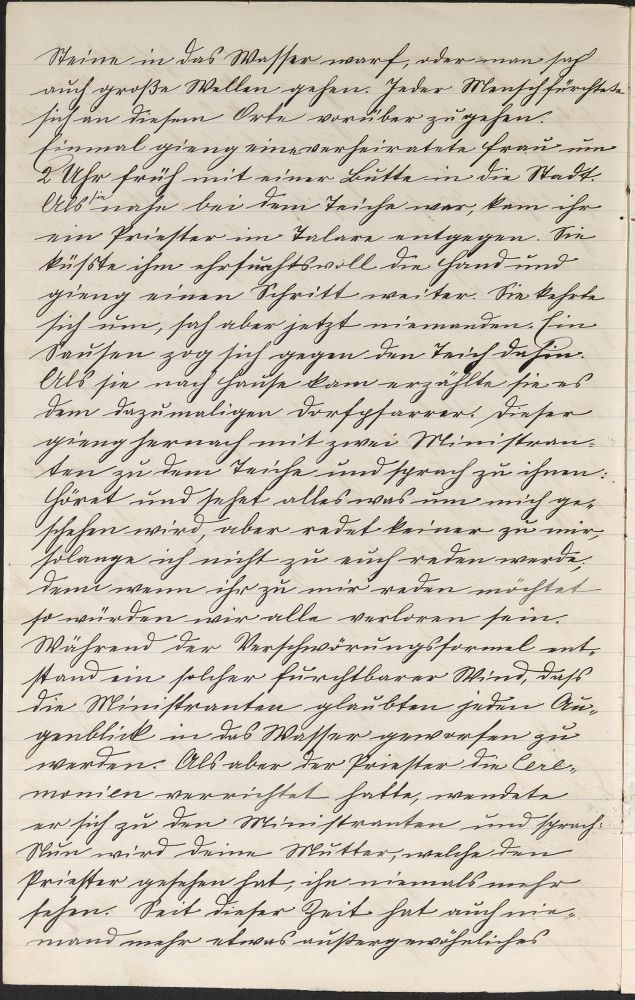 Steine in das Wasser warf, oder man sah
auch große Wellen gehen. Jeder Mensch fürchtete
sich an diesem Orte vorüber zu gehen.
Einmal gieng eine verheiratete Frau um
2 Uhr früh mit einer Butte in die Stadt.
Als sie nahe bei dem Teiche war, kam ihr
ein Priester im Talare entgegen. Sie
küsste ihm ehrfurchtsvoll die Hand und
gieng einen Schritt weiter. Sie kehrte
sich um, sah aber jetzt niemanden. Ein
Sausen zog sich gegen den Teich dahin.
Als sie nach Hause kam erzählte sie es
dem dazumaligen Dorfpfarrer. Dieser
gieng hernach mit zwei Ministran-
ten zu dem Teiche und sprach zu ihnen:
Höret und sehet alles was um mich ge-
schehen wird, aber redet keiner zu mir,
solange ich nicht zu euch reden werde;
denn wenn ihr zu mir reden möchtet
so würden wir alle verloren sein.
Während der Verschwörungsformel ent-
stand ein solcher furchtbarer Wind, dass
die Ministranten glaubten jeden Au-
genblick in das Wasser geworfen zu
werden. Als aber der Priester die Cere-
monien verrichtet hatte, wendete
er sich zu den Ministranten und sprach:
Nun wird deine Mutter, welche den
Priester gesehen hat, ihn niemals mehr
sehen. Seit dieser Zeit hat auch nie-
mand mehr etwas außergewöhnliches